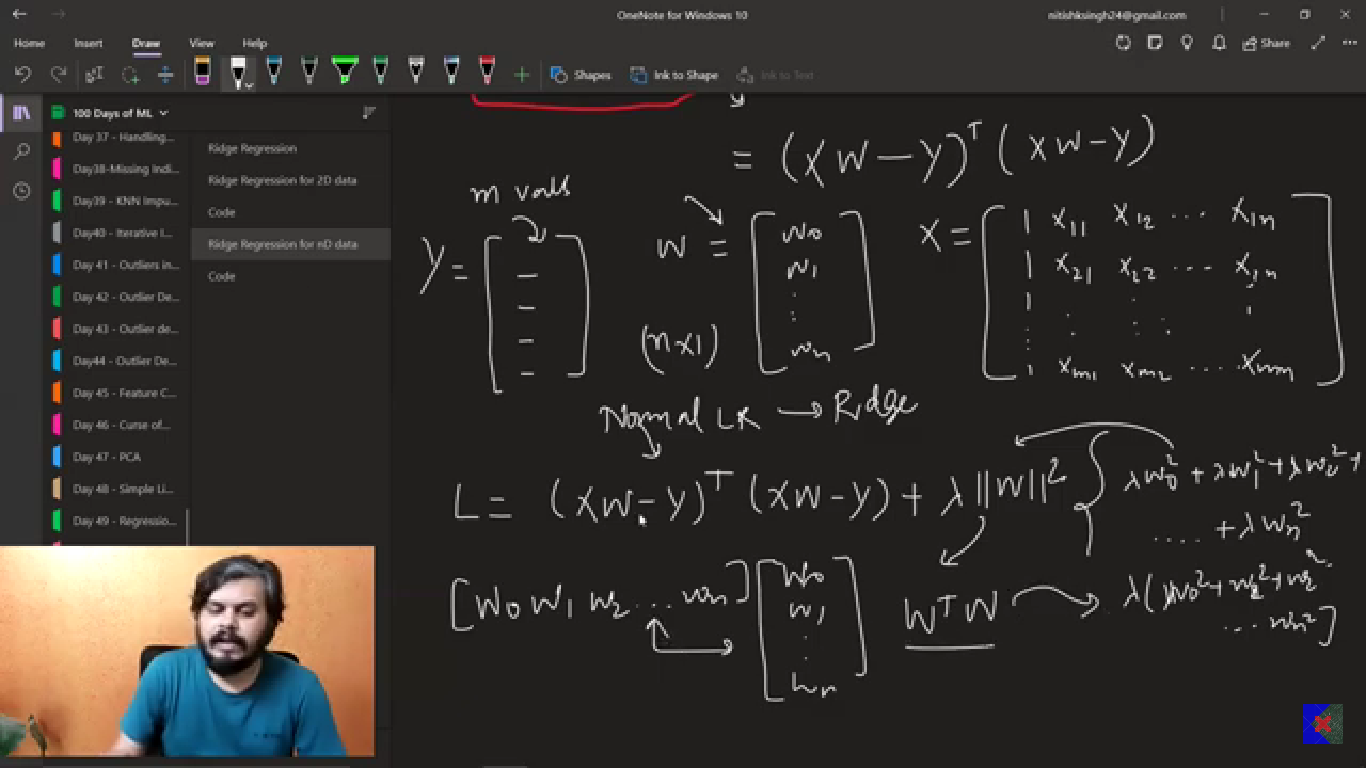 OneNote for Windows 10
nitishksingh24@gmail.com
Home Insert Draw View Help
Share
Shapes Ink to Shape Ink to Text
100 Days of ML
Day 37 - Handling...
Day38-Missing Indi...
Day39 - KNN Impu...
Day40 - Iterative I...
Day 41 - Outliers in...
Day 42 - Outlier De...
Day 43 - Outlier de...
Day44 - Outlier De...
Day 45 - Feature C...
Day 46 - Curse of...
Day 47 - PCA
Day 48 - Simple Li...
Day 49 - Regressio...
Ridge Regression
Ridge Regression for 2D data
Code
Ridge Regression for nD data
Code
= (XW - Y)ᵀ (XW - Y)
m vals
Y = [ - - - - ]
W = [ W0 W1 ⋮ Wn ]
(n×1)
X = [ 1 X11 X12 ... X1n
1 X21 X22 ... X2n
1 ⋮ ⋮ ⋮
1 Xm1 Xm2 .... Xmn ]
Normal LR → Ridge
L = (XW - Y)ᵀ (XW - Y) + λ||W||²
λW0² + λW1² + λW2² +
.... + λWn²
[W0 W1 W2 ... Wn] [ W0 W1 ⋮ Wn ]
WᵀW → λ(W0² + W1² + W2²
... Wn²]